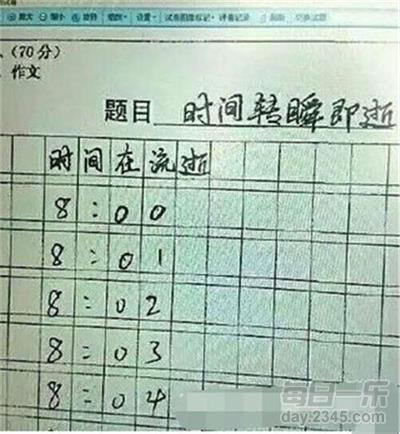 放大 缩小 旋转 缩放 设置 试卷图像标记 评卷记录 刷新 切换试题
(70分)
作文
题目 时间转瞬即逝
时间在流逝
8:00
8:01
8:02
8:03
8:04
每日一乐
day.2345.com